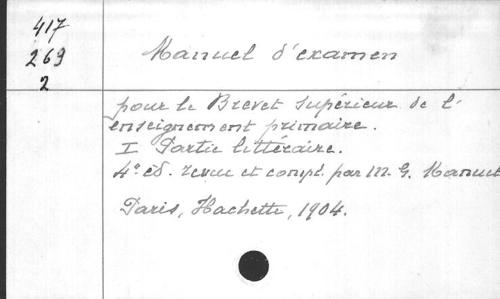 417
269
2
Manuel d'examen
pour le Brevet supérieur de l'
enseignement primaire.
I Partie littéraire.
4e éd. revue et compl. par M. G. Manuel
Paris, Hachette, 1904.